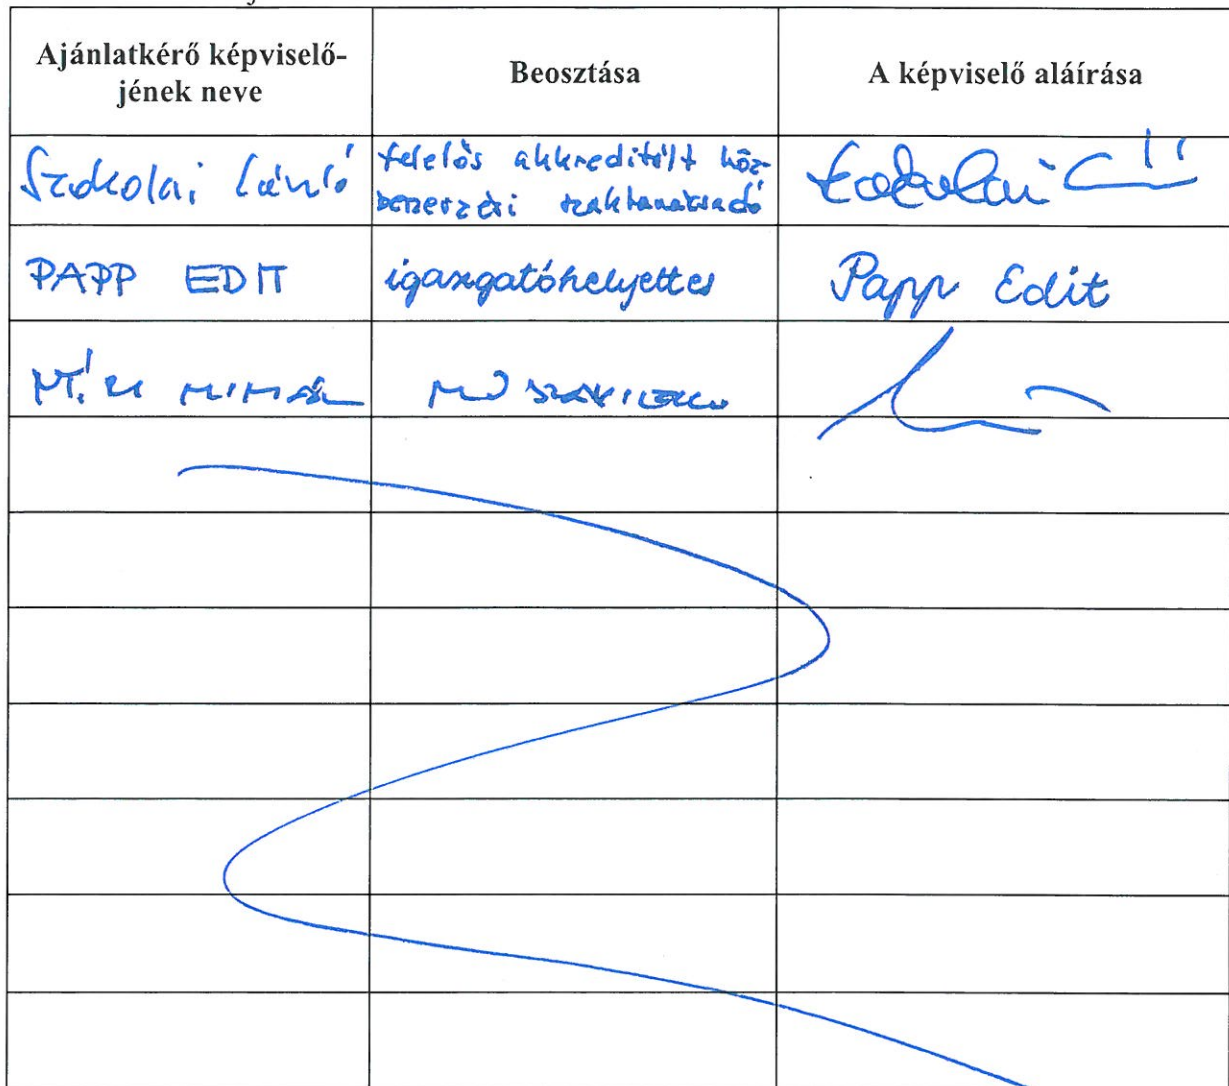 Ajánlatkérő képviselő-
jének neve
Beosztása
A képviselő aláírása
Szokolai László
felelős akkreditált köz-
beszerzési szaktanácsadó
Szokolai
PAPP EDIT
igazgatóhelyettes
Papp Edit